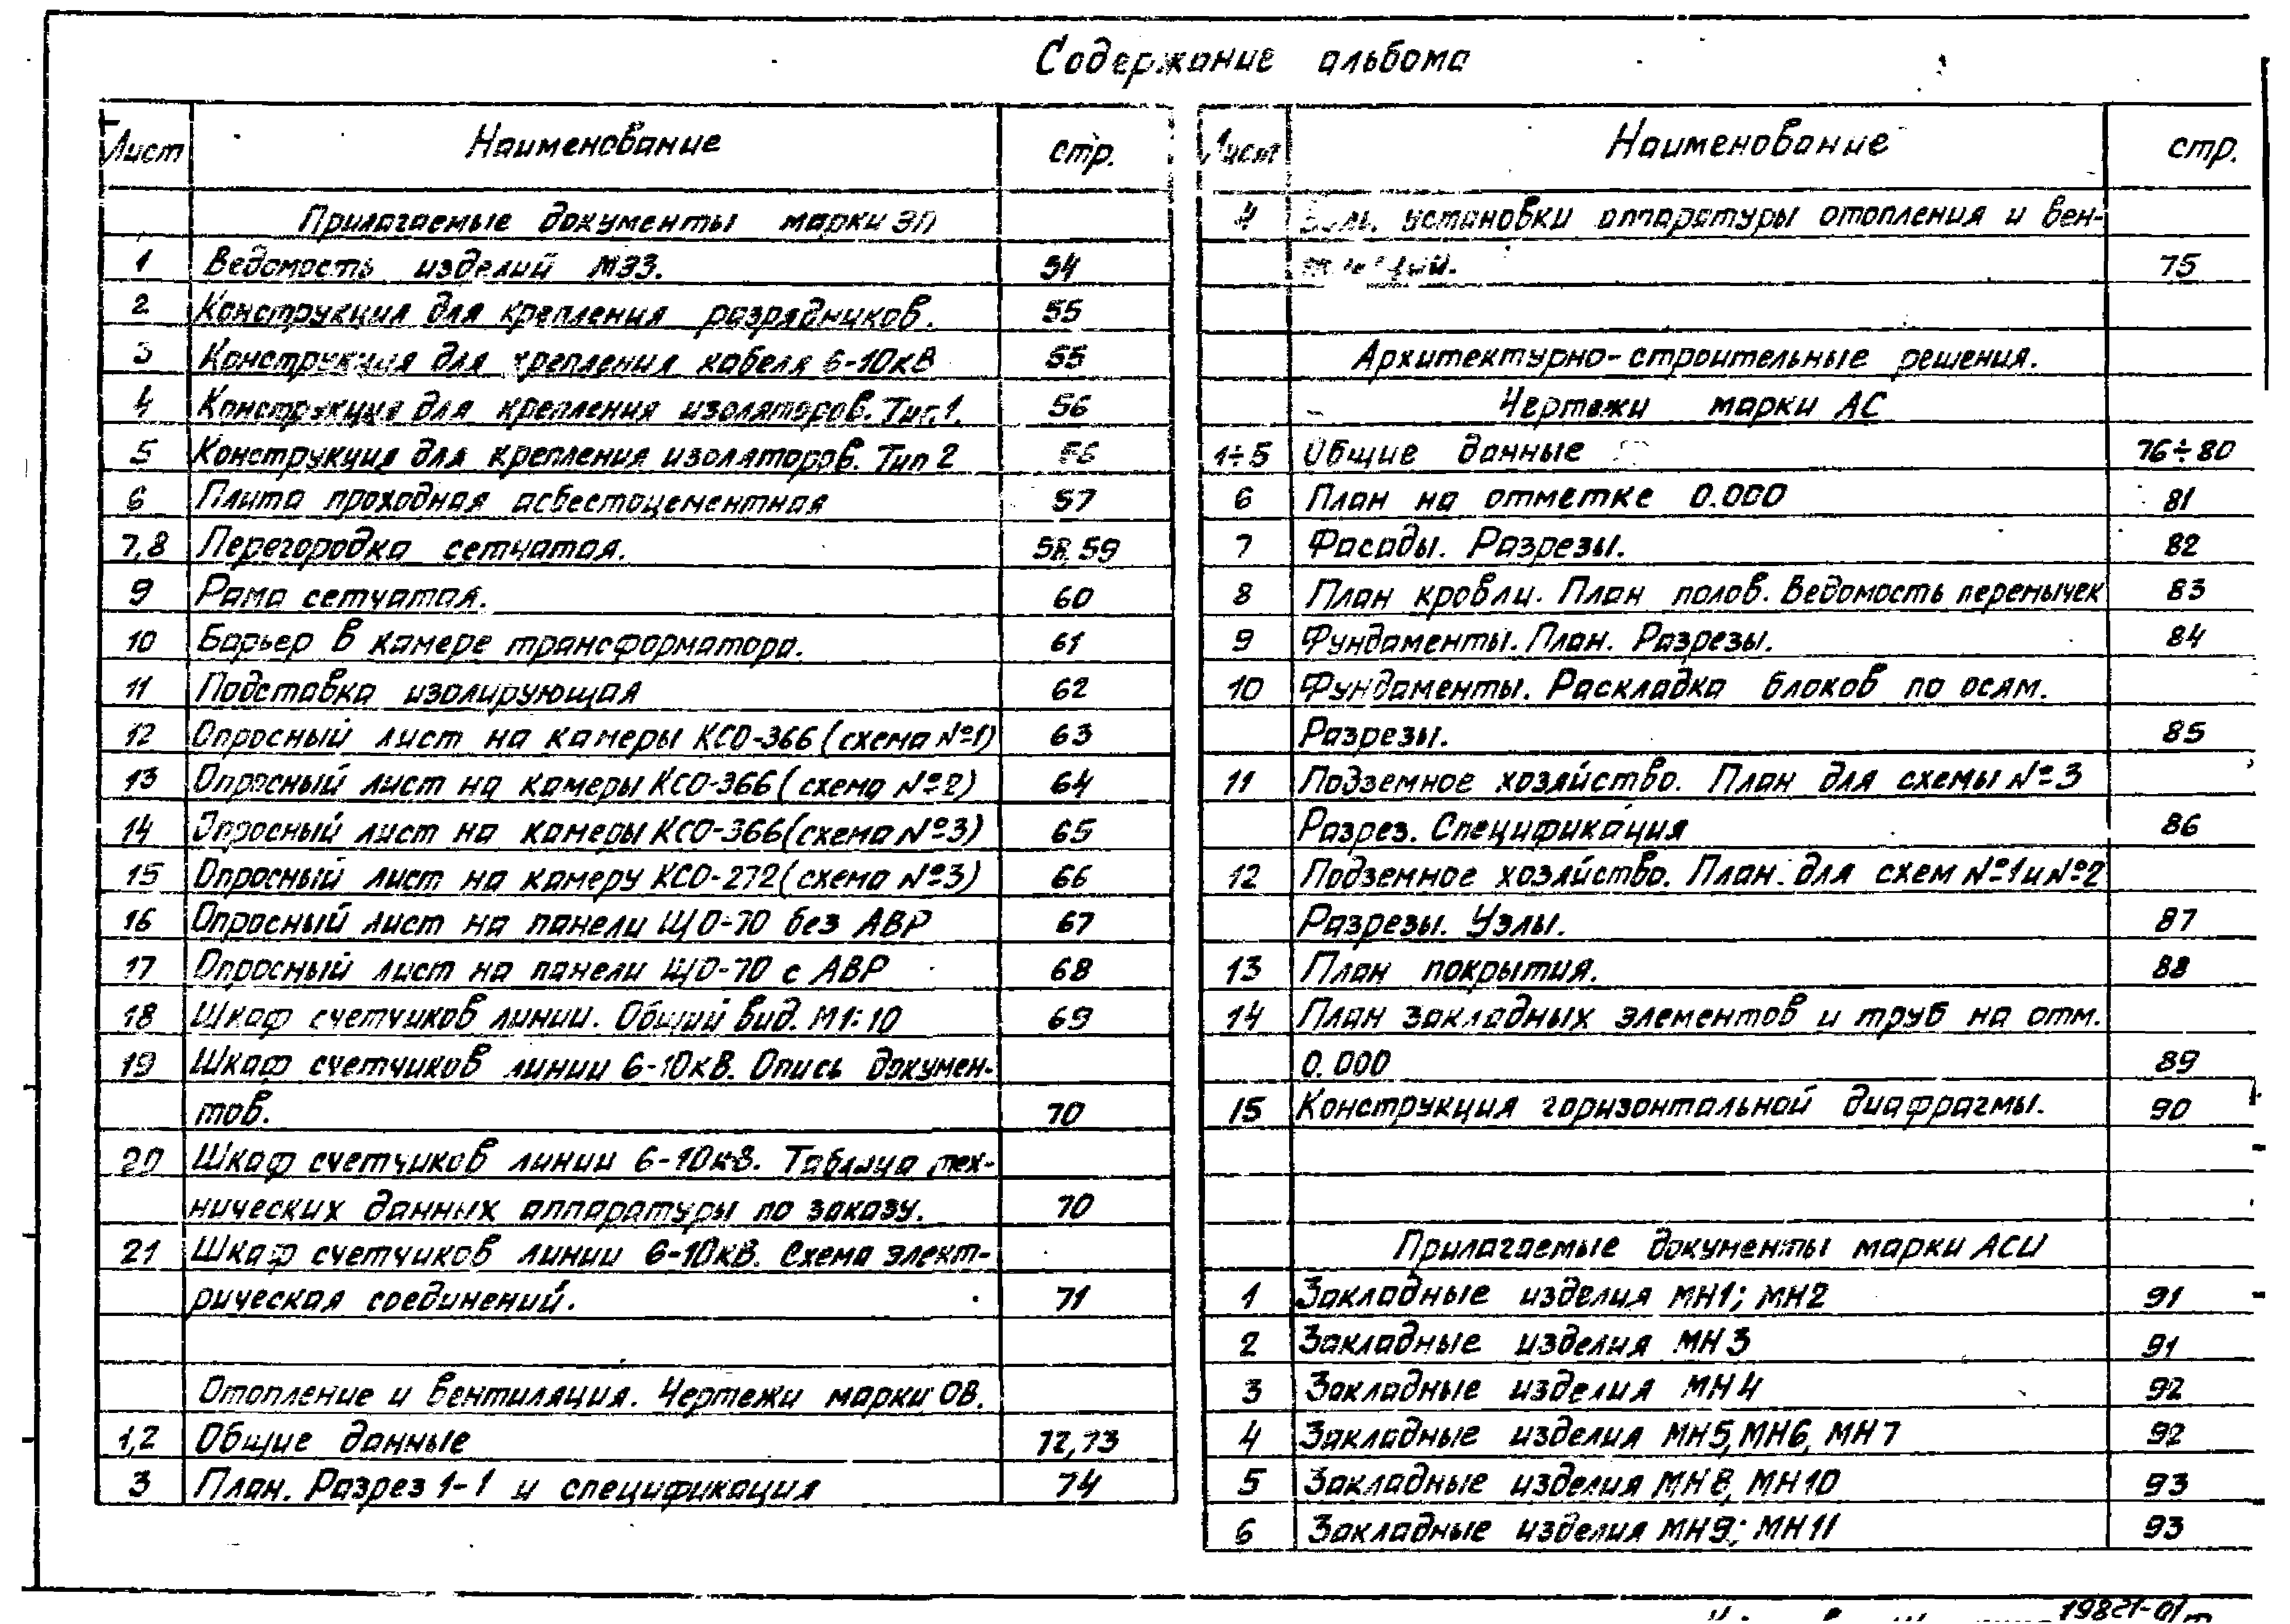 Содержание альбома
Лист Наименование стр.
Прилагаемые документы марки ЭП
1 Ведомость изделий МЭЗ. 54
2 Конструкция для крепления разрядников. 55
3 Конструкция для крепления кабеля 6-10кВ 55
4 Конструкция для крепления изоляторов. Тип 1. 56
5 Конструкция для крепления изоляторов. Тип 2 56
6 Плита проходная асбестоцементная 57
7,8 Перегородка сетчатая. 58,59
9 Рама сетчатая. 60
10 Барьер в камере трансформатора. 61
11 Подставка изолирующая 62
12 Опросный лист на камеры КСО-366 (схема №1) 63
13 Опросный лист на камеры КСО-366 (схема №2) 64
14 Опросный лист на камеры КСО-366 (схема №3) 65
15 Опросный лист на камеру КСО-272 (схема №3) 66
16 Опросный лист на панели ЩО-70 без АВР 67
17 Опросный лист на панели ЩО-70 с АВР 68
18 Шкаф счетчиков линии. Общий вид. М1:10 69
19 Шкаф счетчиков линии 6-10кВ. Опись докумен-
тов. 70
20 Шкаф счетчиков линии 6-10кВ. Таблица тех-
нических данных аппаратуры по заказу. 70
21 Шкаф счетчиков линии 6-10кВ. Схема элект-
рическая соединений. 71
Отопление и вентиляция. Чертежи марки ОВ.
1,2 Общие данные 72,73
3 План. Разрез 1-1 и спецификация 74
Лист Наименование стр.
4 установки аппаратуры отопления и вен-
75
Архитектурно-строительные решения.
Чертежи марки АС
1÷5 Общие данные 76÷80
6 План на отметке 0.000 81
7 Фасады. Разрезы. 82
8 План кровли. План полов. Ведомость перемычек 83
9 Фундаменты. План. Разрезы. 84
10 Фундаменты. Раскладка блоков по осям.
Разрезы. 85
11 Подземное хозяйство. План для схемы №3
Разрез. Спецификация 86
12 Подземное хозяйство. План для схем №1 и №2
Разрезы. Узлы. 87
13 План покрытия. 88
14 План закладных элементов и труб на отм.
0.000 89
15 Конструкция горизонтальной диафрагмы. 90
Прилагаемые документы марки АСИ
1 Закладные изделия МН1; МН2 91
2 Закладные изделия МН3 91
3 Закладные изделия МН4 92
4 Закладные изделия МН5, МН6, МН7 92
5 Закладные изделия МН8, МН10 93
6 Закладные изделия МН9; МН11 93